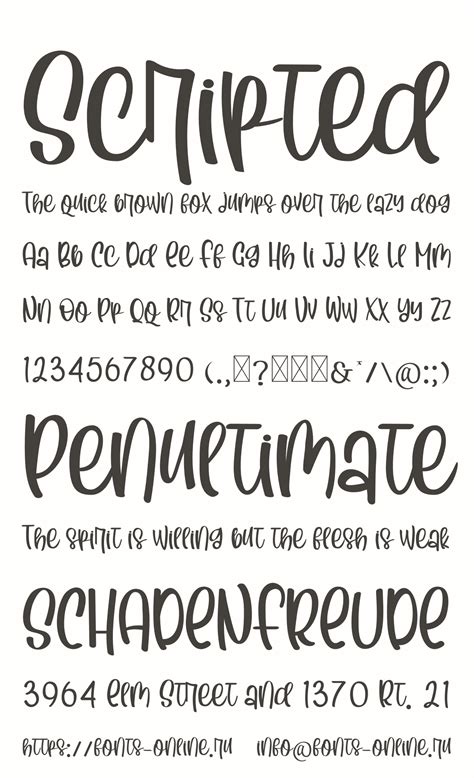 Scripted
The quick brown fox jumps over the lazy dog
Aa Bb Cc Dd Ee Ff Gg Hh Ii Jj Kk Ll Mm
Nn Oo Pp Qq Rr Ss Tt Uu Vv Ww Xx Yy Zz
1234567890 (.,☒?☒☒☒&*/\@:;)
Penultimate
The spirit is willing but the flesh is weak
SCHADENFREUDE
3964 Elm Street and 1370 Rt. 21
https://fonts-online.ru info@fonts-online.ru